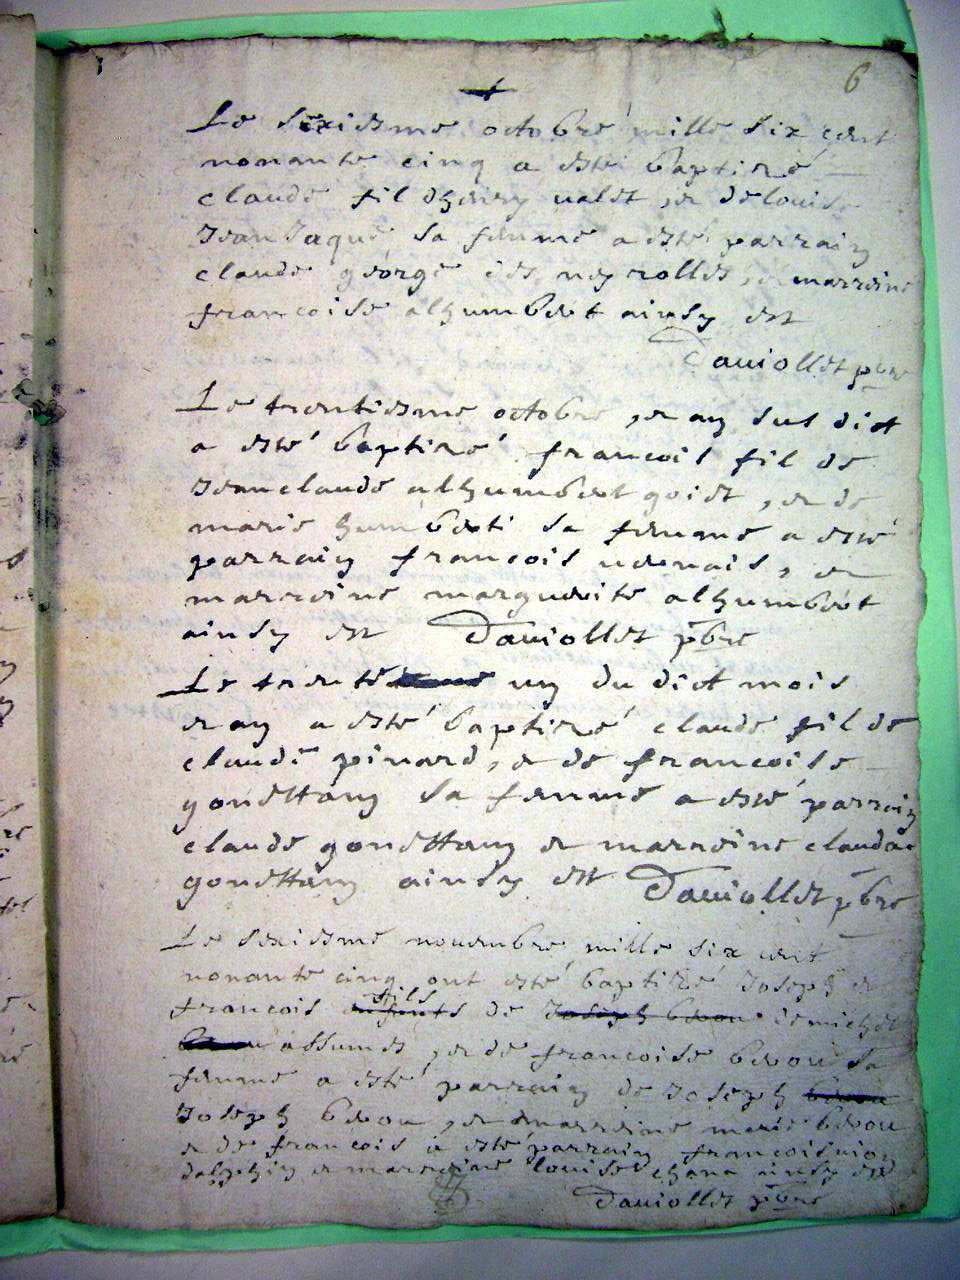 6
Le sexiesme octobre mille six cent
nonante cinq a esté baptizé
claude fil dhenry ualet, et de louise
Jean Jaque sa femme a esté parrain
claude george des neyrolles, et marreine
francoise alhumbert ainsy est
Dauiollet pbre
Le trentiesme octobre, et an sus dict
a esté baptizé francois fil de
Jean claude alhumbert goiet, et de
marie humbert sa femme a esté
parrain francois uenais, et
marreine marguerite alhumbert
ainsy est Dauiollet pbre
Le trente un du dict mois
et an a esté baptizé claude fil de
claude pinard, et de francoise
gonettang sa femme a esté parrain
claude gonettang et marreine claudae
gonettang ainsy est Dauiollet pbre
Le sexiesme nouembre mille six cent
nonante cinq ont esté baptizé Joseph et
francois enfants fils de Joseph beuou de michel
assumes, et de francoise beuou sa
femme a esté parrain de Joseph beuou
Joseph beuou, et marreine marie beuou
et de francois a esté parrain francois
dalphin et marreine louise ainsy est
Dauiollet pbre